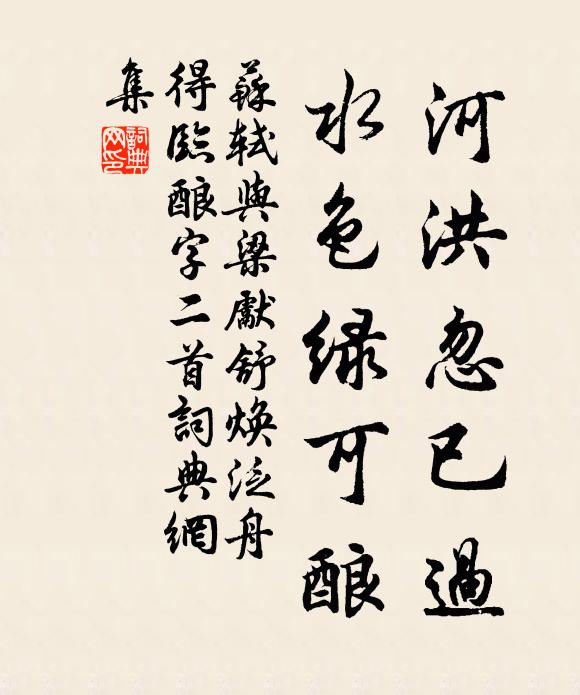 河洪忽已過
水色緑可酿
蘇軾與梁獻舒煥泛舟
得臨酿字二首詞典網
集
詞典網印